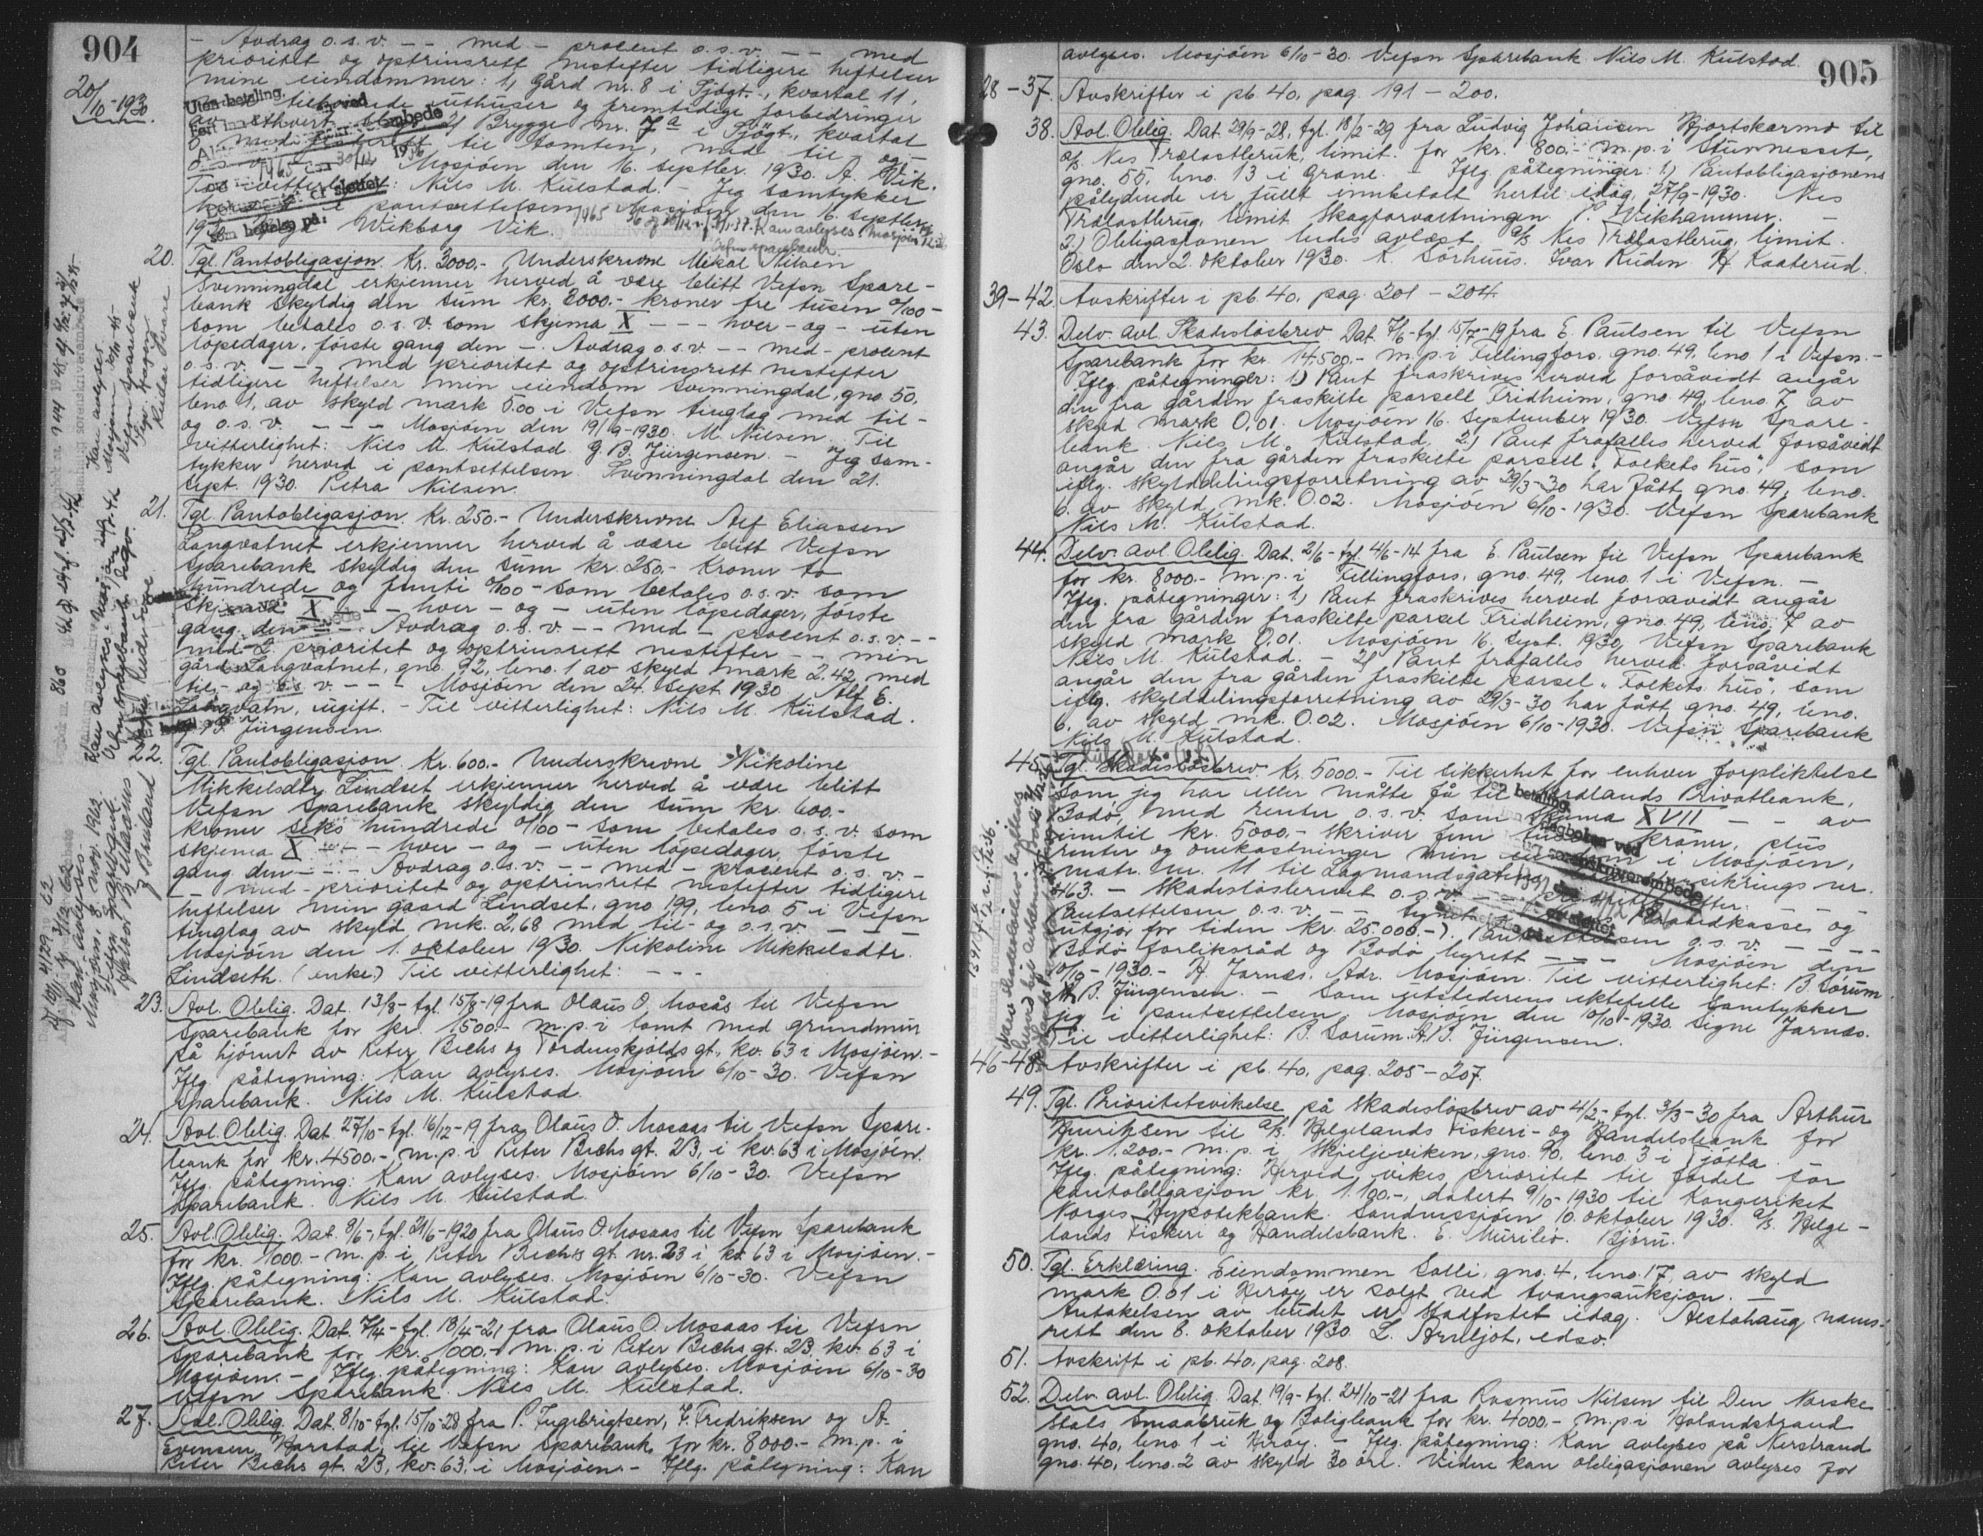 904
20/10-1930.
- Avdrag o.s.v. - - med - procent o.s.v. - - med
prioritet og optrinsrett nestefter tidligere heftelser
mine eiendommer: 1, Gård nr. 8 i Sjögt., kvartal 11,
tilhörende uthuser og fremtidige forbedringer
av ethvert 2) Brygge nr. 7a i Sjögt., kvartal
til tomten, med til og -
Mosjöen den 16. septbr. 1930. A. Vik.
Til vitterlighet: Nils M. Kulstad. - Jeg samtykker
i pantsettelsen. Mosjöen den 16. septbr.
Wikborg Vik.
20. Tgl. Pantobligasjon. Kr. 3000.- Underskrevne Mikal Nilsen
Svenningdal erkjenner herved å være blitt Vefsn Spare-
bank skyldig den sum kr. 3000.- kroner tre tusen 0/100 -
som betales o.s.v. som skjema X - - - hver - og - uten
löpedager, förste gang den - . Avdrag o.s.v. - - med - procent
o.s.v. - - - med prioritet og optrinsrett nestefter
tidligere heftelser min eiendom Svenningdal, gno. 50,
bno. 1, av skyld mark 5.00 i Vefsn tinglag med til-
og o.s.v. - - - Mosjöen den 19/9-1930. M. Nilsen. Til
vitterlighet: Nils M. Kulstad. G. B. Jürgensen. - Jeg sam-
tykker herved i pantsettelsen. Svenningdal den 21.
sept. 1930. Petra Nilsen.
21. Tgl. Pantobligasjon. Kr. 250.- Underskrevne Alf Eliassen
Langvatnet erkjenner herved å være blitt Vefsn
Sparebank skyldig den sum kr. 250.- kroner to
hundrede og femti 0/100 - som betales o.s.v. som
skjema X - - - hver - og - uten löpedager, förste
gang den - - . Avdrag o.s.v. - - med - procent o.s.v. - -
med 2. prioritet og optrinsrett nestefter - - min
gård Langvatnet, gno. 92, bno. 1 av skyld mark 2.42 med
til- og o.s.v. - - - Mosjöen den 24. sept. 1930 Alf E.
Langvatn, ugift. - Til vitterlighet: Nils M. Kulstad.
G. B. Jürgensen.
22. Tgl. Pantobligasjon. Kr. 600.- Underskrevne Nikoline
Mikkelsdtr. Lindset erkjenner herved å være blitt
Vefsn Sparebank skyldig den sum kr. 600.-
kroner seks hundrede 0/100 - som betales o.s.v. som
skjema X - - - hver - og - uten löpedager, förste
gang den - - - . Avdrag o.s.v. - - med - procent o.s.v. -
- - med - prioritet og optrinsrett nestefter tidligere
heftelser min gaard Lindset, gno. 199, bno. 5 i Vefsn
tinglag av skyld mk. 2,68 med til- og o.s.v. - - -
Mosjöen den 1. oktober 1930. Nikoline Mikkelsdtr.
Lindseth. (enke.) Til vitterlighet: - - -
23. Avl. Oblig. Dat. 13/8- tgl. 15/8-19 fra Olaus O. Mosås til Vefsn
Sparebank for kr. 1500.- m.p. i tomt med grundmur
på hjörnet av Peter Bechs og Tordenskjolds gt., kv. 63 i Mosjöen. -
Iflg. påtegning: Kan avlyses. Mosjöen 6/10-30. Vefsn
Sparebank. Nils M. Kulstad.
24. Avl. Oblig. Dat. 27/10- tgl. 16/12-19 fra Olaus O. Mosaas til Vefsn Spare-
bank for kr. 4500.- m.p. i Peter Bechs gt. 23, i kv. 63 i Mosjöen.
Iflg. påtegning: Kan avlyses. Mosjöen 6/10-30. Vefsn
Sparebank. Nils M. Kulstad.
25. Avl. Oblig. Dat. 8/6-, tgl. 21/6-1920 fra Olaus O. Mosaas til Vefsn Sparebank
for kr. 1000.- m.p. i Peter Bechs gt. nr. 23 i kv. 63 i Mosjöen. -
Iflg. påtegning: Kan avlyses. Mosjöen 6/10-30. Vefsn
Sparebank. Nils M. Kulstad.
26. Avl. Oblig. Dat. 7/4- tgl. 18/4-21 fra Olaus O. Mosaas til Vefsn
Sparebank for kr. 1000.- m.p. i Peter Bechs gt. 23, kv. 63 i
Mosjöen. - Iflg. påtegning: Kan avlyses. Mosjöen 6/10-30
Vefsn Sparebank. Nils M. Kulstad.
27. Avl. Oblig. Dat. 8/10- tgl. 15/10-28 fra P. Ingebrigtsen, F. Fredriksen og A.
Evensen Harstad, til Vefsn Sparebank for kr. 8000.- m.p. i
Peter Bechs gt. 23, kv. 63, i Mosjöen. - Iflg. påtegning: Kan
905
avlyses. Mosjöen 6/10-30. Vefsn Sparebank. Nils M. Kulstad.
28-37. Avskrifter i pb. 40, pag. 191 - 200.
38. Avl. Oblig. Dat. 29/9-28, tgl. 18/2-29 fra Ludvig Johansen Hjortskarmo til
A/S. Nes Trælastbruk, limit. for kr. 800.- m.p. i Stunnesset,
gno. 55, bno. 13 i Grane. - Iflg. påtegninger: 1.) Pantobligasjonens
pålydende er fullt innbetalt hertil idag, 27/9-1930. Nes
Trælastbrug, limit. Skogforvaltningen P. Vekhammer. -
2.) Obligasjonen bedes avlæst. A/S Nes Trælastbrug, limit.
Oslo den 2. oktober 1930. K. Sörhuus. Ivar Ruden. H. Kaaterud.
39-42. Avskrifter i pb. 40, pag. 201 - 204.
43. Delv. avl. Skadeslösbrev. Dat. 7/6- tgl. 15/7-19 fra E. Paulsen til Vefsn
Sparebank for kr. 14500.- m.p. i Fellingfors, gno. 49, bno. 1 i Vefsn. -
Iflg. påtegninger: 1.) Pant fraskrives herved forsåvidt angår
den fra gården fraskilte parsell Fridheim, gno. 49, bno. 7 av
skyld mark 0,01. Mosjöen 16. september 1930. Vefsn Spare-
bank. Nils M. Kulstad. 2.) Pant frafalles herved forsåvidt
angår den fra gården fraskilte parsell "Folkets hus", som
iflg. skylddelingsforretning av 29/3-30 har fått gno. 49, bno.
6. av skyld mk. 0.02. Mosjöen 6/10-1930. Vefsn Sparebank
Nils M. Kulstad.
44. Delv. avl. Oblig. Dat. 2/6- tgl. 4/6-14 fra E. Paulsen til Vefsn Sparebank
for kr. 8000.- m.p. i Fellingfors, gno. 49, bno. 1 i Vefsn. -
Iflg. påtegninger: 1.) Pant fraskrives herved forsavidt angår
den fra gården fraskilte parsel Fridheim, gno. 49, bno. 7 av
skyld mark 0,01. Mosjöen 16. sept. 1930. Vefsn Sparebank
Nils M. Kulstad. - 2) Pant frafalles herved forsåvidt
angår den fra gården fraskilte parsel "Folkets hus", som
iflg. skylddelingsforretning av 29/3-30 har fått gno. 49, bno.
6. av skyld mk. 0.02. Mosjöen 6/10-1930. Vefsn Sparebank
Nils M. Kulstad.
45. Tgl. Skadeslösbrev. Kr. 5000.- Til sikkerhet for enhver forpliktelse
som jeg har eller måtte få til Nordlands Privatbank,
Bodö, med renter o.s.v. som skjema XVII - - av
inntil kr. 5000.- skriver fem tusen kroner, plus
renter og omkostninger min eiendom i Mosjöen,
matr. nr. 11 til Lagmandsgaten forsikrings nr.
463. - Skadeslösbrevet o.s.v.
Pantsettelsen o.s.v. - - Brandkasses og
utgjör for tiden kr. 25.000.-). Pantsettelsen o.s.v. - - -
Bodö forliksråd og Bodö byrett - - - Mosjöen den
10/10-1930. - H. Jarnæs. Adr. Mosjöen. Til vitterlighet: B. Sörum
A. B. Jürgensen. - Som utstederens ektefelle samtykker
jeg i pantsettelsen. Mosjöen den 10/10-1930. Signe Jarnæs.
Til vitterlighet: B. Sorum. A. B. Jürgensen.
46-48. Avskrifter i pb. 40, pag. 205 - 207.
49. Tgl. Prioritetsvikelse på skadeslösbrev av 4/2- tgl. 3/3-30 fra Arthur
Henriksen til A/S. Helgelands Fiskeri- og Handelsbank for
kr. 1.200.- m.p. i Skjeljeviken, gno. 90, bno. 3 i Tjötta.
Iflg. påtegning: Herved vikes prioritet til fordel for
pantobligasjon kr. 1.100.-, datert 9/10-1930 til Kongeriket
Norges Hypotekbank. Sandnessjöen 10. oktober 1930. A/S. Helge-
lands Fiskeri og Handelsbank. E. Bjoru.
50. Tgl. Erklæring. Eiendommen Solli, gno. 4, bno. 17, av skyld
mark 0.01 i Heröy er solgt ved tvangsauksjon. -
Antakelsen av budet er stadfestet idag. Alstahaug nams-
rett den 8. oktober 1930. L. Arnljot, edsv.
51. Avskrift i pb. 40, pag. 208.
52. Delv. avl. Oblig. Dat. 19/9- tgl. 24/10-21 fra Rasmus Nilsen til Den Norske
Stats Smaabruk og Boligbank for kr. 4000.- m.p. i Holandstrand
gno. 40, bno. 1 i Heröy. - Iflg. påtegning: Kan avlyses på Nerstrand
gno. 40, bno. 2 av skyld 30 öre. Videre kan obligasjonen avlyses for